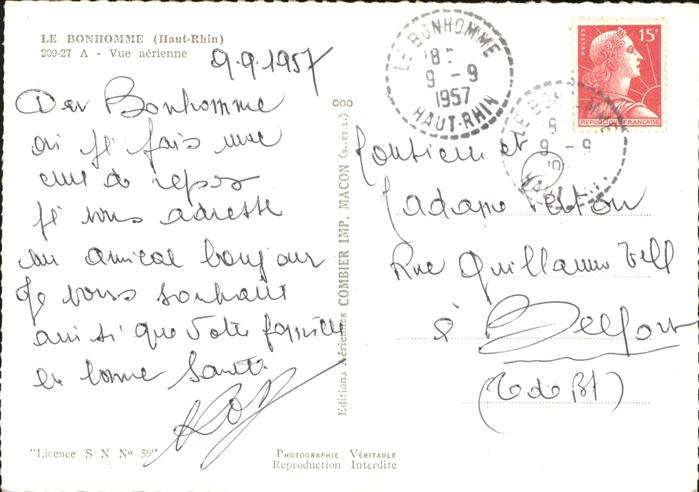 LE BONHOMME (Haut-Rhin)
209-27 A - Vue aérienne
9.9.1957
Bonhomme
où je fais une
cure de repos
je vous adresse
un amical bonjour
Je vous souhaite
ainsi que votre famille
en bonne santé
"Licence S N N° 59"
Editions Aériennes COMBIER IMP. MACON (S.-et-L.)
PHOTOGRAPHIE VÉRITABLE
Reproduction Interdite
LE BONHOMME
18
9 - 9
1957
HAUT-RHIN
POSTES
15F
REPUBLIQUE FRANÇAISE
9 - 9
Monsieur et
Madame
Rue Guillaume Tell
à Belfort
(T de Bt)